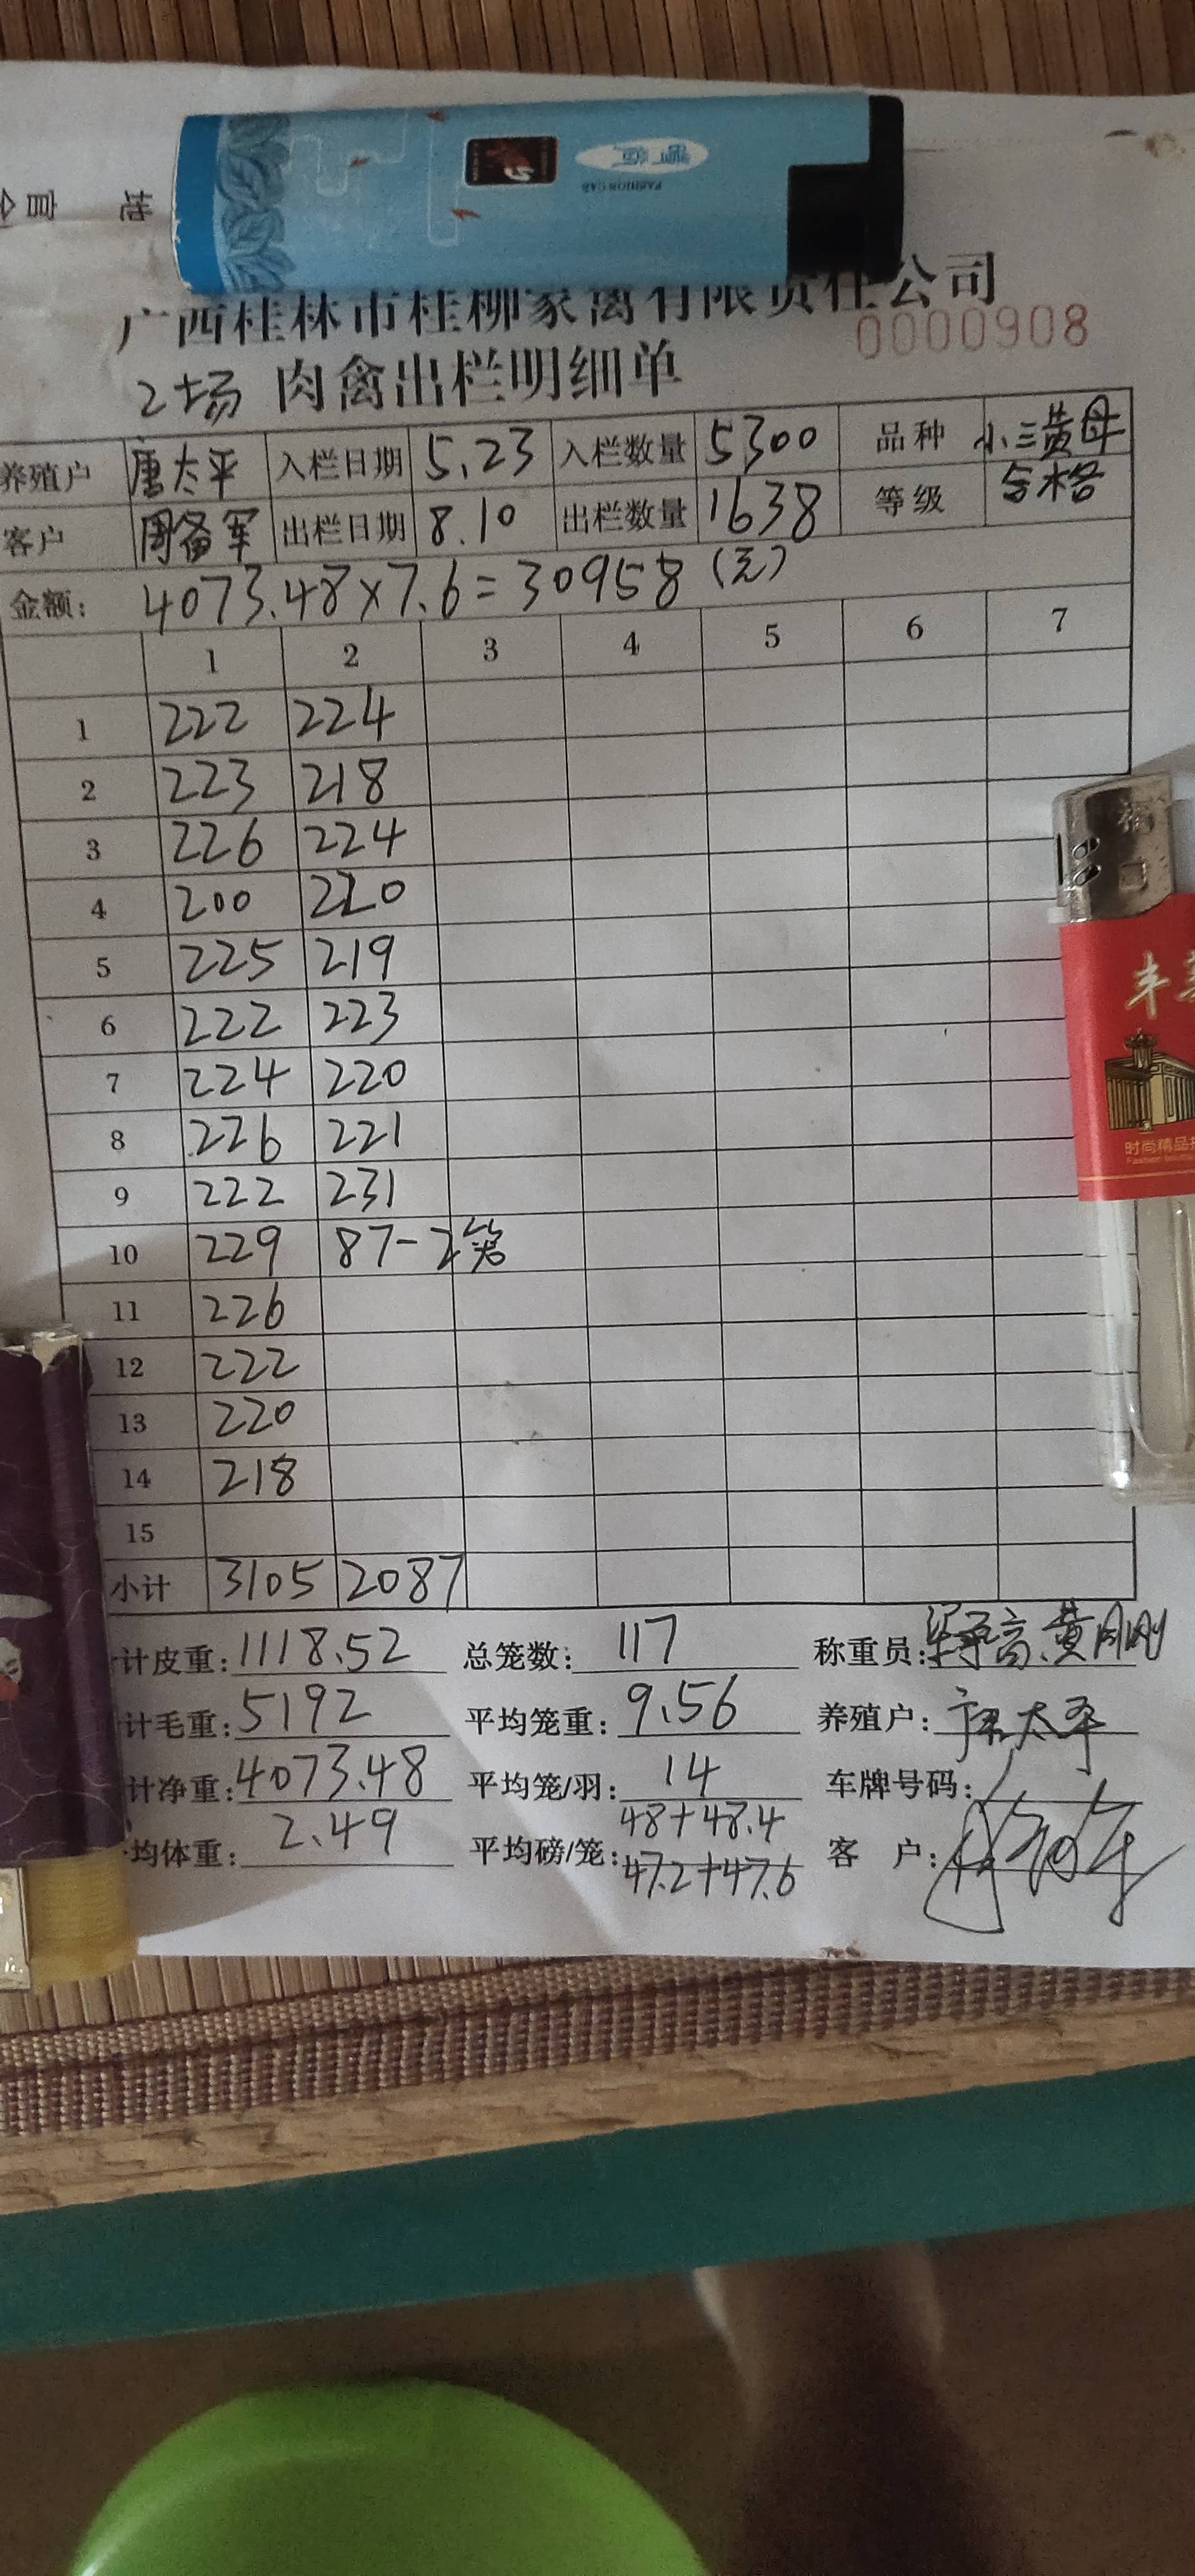 FASHION CAB
广西桂林市桂柳家禽有限责任公司
0000908
2场 肉禽出栏明细单
养殖户 唐太平 入栏日期 5.23 入栏数量 5300 品种 小三黄母
客户 周备军 出栏日期 8.10 出栏数量 1638 等级 合格
金额: 4073.48×7.6=30958(元)
1 2 3 4 5 6 7
1 222 224
2 223 218
3 226 224
4 200 220
5 225 219
6 222 223
7 224 220
8 226 221
9 222 231
10 229 87-2笼
11 226
12 222
13 220
14 218
15
小计 3105 2087
计皮重: 1118.52 总笼数: 117 称重员: 黄刚
计毛重: 5192 平均笼重: 9.56 养殖户: 唐太平
计净重: 4073.48 平均笼/羽: 14 车牌号码:
均体重: 2.49 平均磅/笼: 48+48.4 47.2+47.6 客 户:
时尚精品